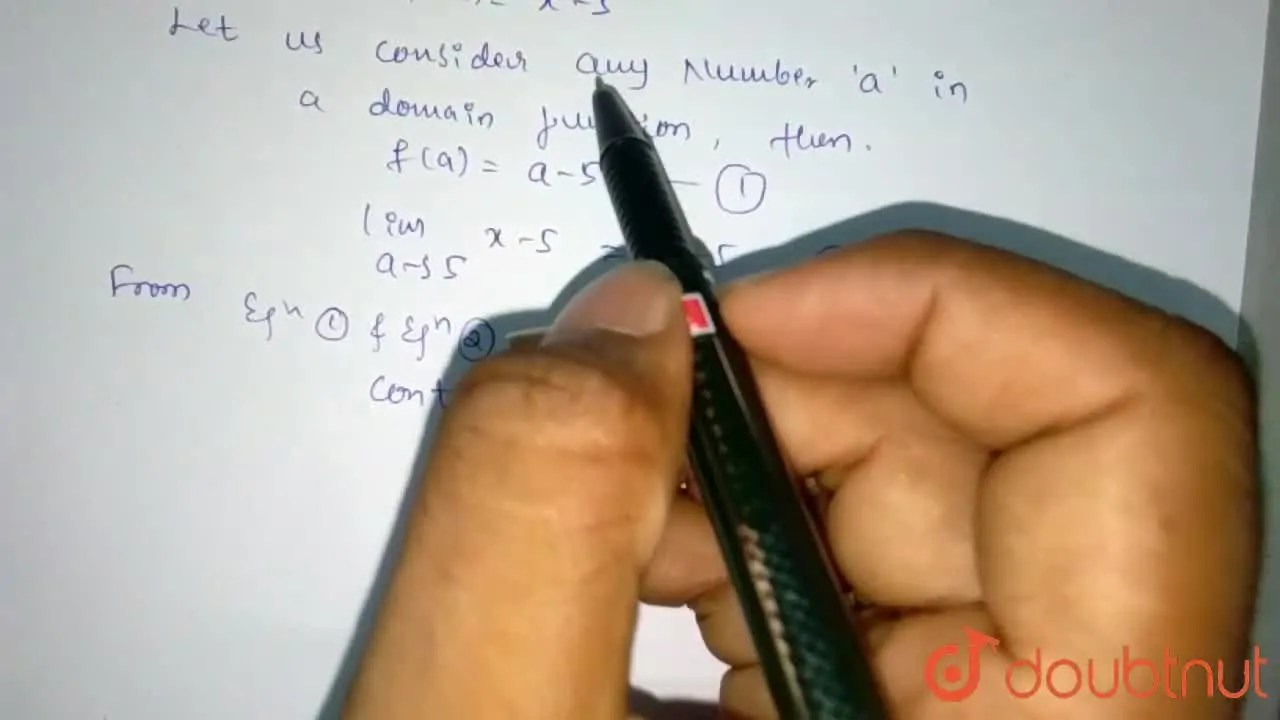 x-5
Let us consider any Number 'a' in
a domain function, then.
f(a) = a-5 — ①
lim x-5 =
a→5
From Eqn ① & Eqn ②
Cont
doubtnut